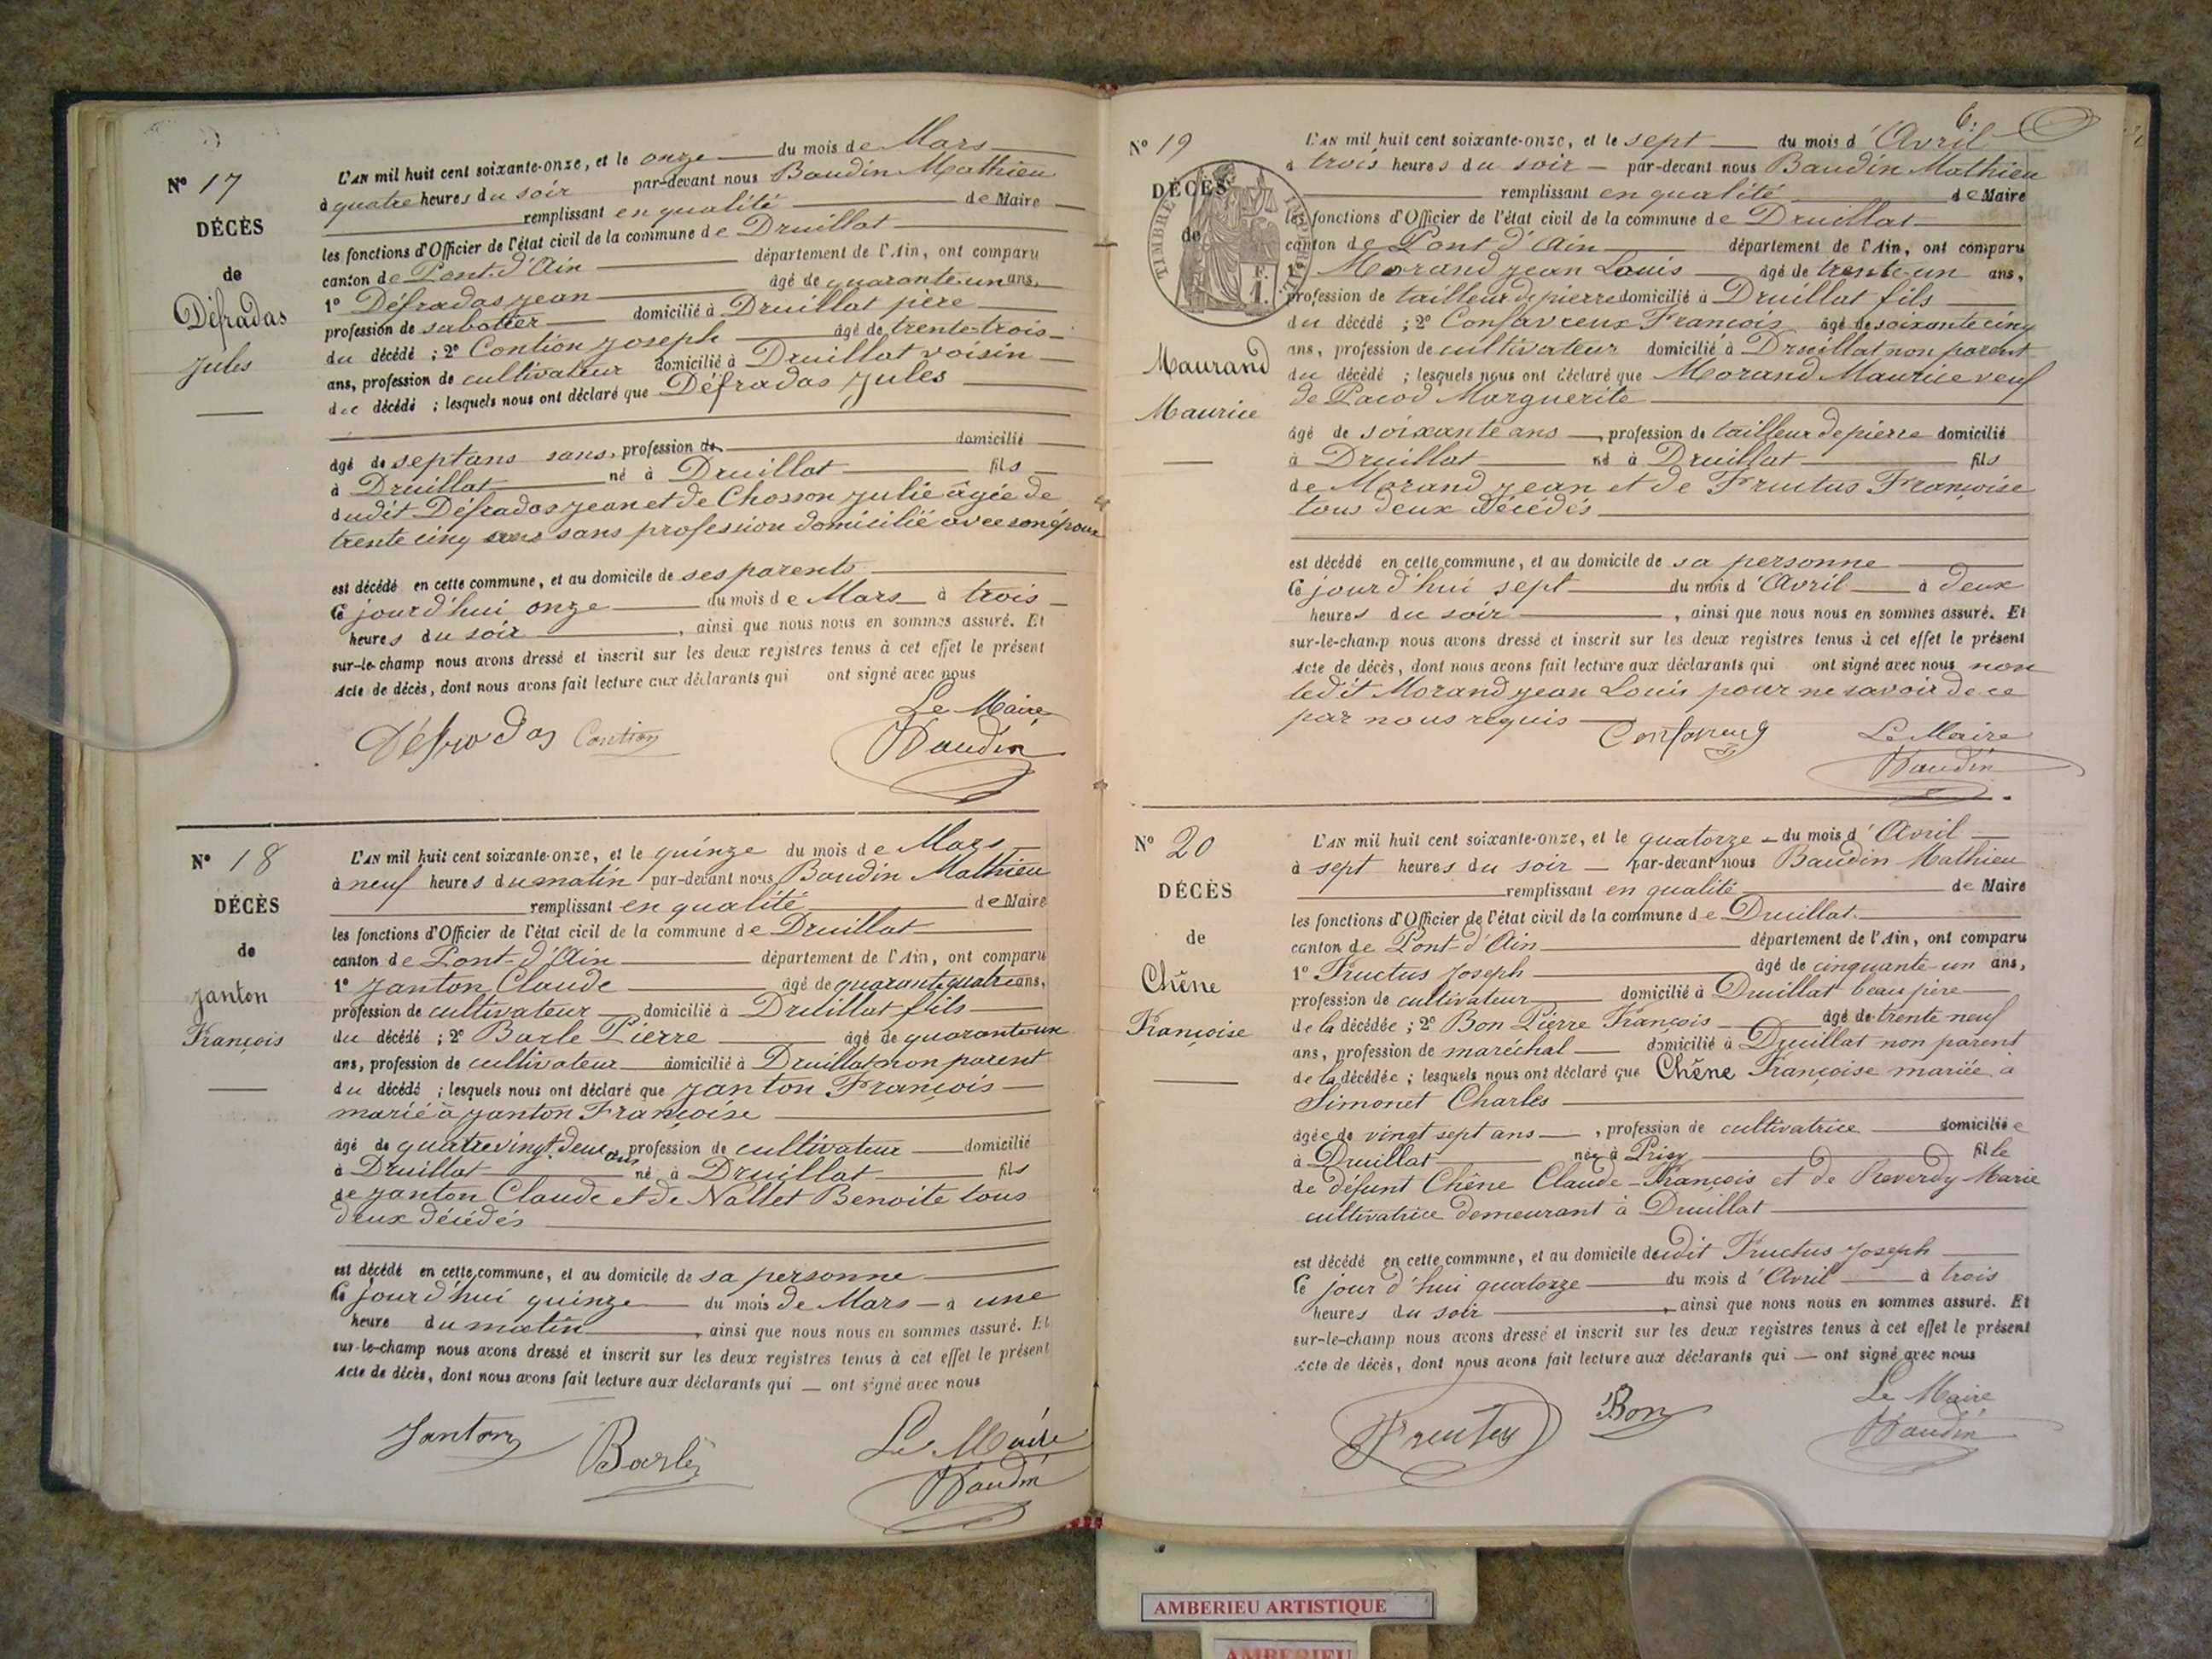 N° 17
DÉCÈS
de
Défradas
Jules
L'AN mil huit cent soixante-onze, et le onze du mois de Mars
à quatre heures du soir par-devant nous Baudin Mathieu
remplissant en qualité de Maire
les fonctions d'Officier de l'état civil de la commune de Druillat
canton de Pont-d'Ain département de l'Ain, ont comparu
1° Défradas Jean âgé de quarante-un ans,
profession de sabotier domicilié à Druillat père
du décédé ; 2° Contion Joseph âgé de trente-trois
ans, profession de cultivateur domicilié à Druillat voisin
du décédé ; lesquels nous ont déclaré que Défradas Jules
âgé de sept ans sans profession de domicilié
à Druillat né à Druillat fils
dudit Défradas Jean et de Chosson Julie âgée de
trente cinq ans sans profession domicilié avec son époux
est décédé en cette commune, et au domicile de ses parents
Ce jourd'hui onze du mois de Mars à trois
heures du soir, ainsi que nous nous en sommes assuré. Et
sur-le-champ nous avons dressé et inscrit sur les deux registres tenus à cet effet le présent
Acte de décès, dont nous avons fait lecture aux déclarants qui ont signé avec nous
Le Maire
Défradas Contion Baudin
N° 18
DÉCÈS
de
Janton
François
L'AN mil huit cent soixante-onze, et le quinze du mois de Mars
à neuf heures du matin par-devant nous Baudin Mathieu
remplissant en qualité de Maire
les fonctions d'Officier de l'état civil de la commune de Druillat
canton de Pont-d'Ain département de l'Ain, ont comparu
1° Janton Claude âgé de quarante quatre ans,
profession de cultivateur domicilié à Druillat fils
du décédé ; 2° Barle Pierre âgé de quarante un
ans, profession de cultivateur domicilié à Druillat non parent
du décédé ; lesquels nous ont déclaré que Janton François
marié à Janton Françoise
âgé de quatre vingt-deux ans profession de cultivateur domicilié
à Druillat né à Druillat fils
de Janton Claude et de Nallet Benoite tous
deux décédés
est décédé en cette commune, et au domicile de sa personne
Ce jourd'hui quinze du mois de Mars à une
heure du matin, ainsi que nous nous en sommes assuré. Et
sur-le-champ nous avons dressé et inscrit sur les deux registres tenus à cet effet le présent
Acte de décès, dont nous avons fait lecture aux déclarants qui ont signé avec nous
Janton Barle Le Maire
Baudin
6
N° 19
DÉCÈS
de
Maurand
Maurice
TIMBRE IMPÉRIAL
L'AN mil huit cent soixante-onze, et le sept du mois d'Avril
à trois heures du soir par-devant nous Baudin Mathieu
remplissant en qualité de Maire
les fonctions d'Officier de l'état civil de la commune de Druillat
canton de Pont d'Ain département de l'Ain, ont comparu
1° Morand Jean Louis âgé de trente-un ans,
profession de tailleur de pierre domicilié à Druillat fils
du décédé ; 2° Confavreux François âgé de soixante cinq
ans, profession de cultivateur domicilié à Druillat non parent
du décédé ; lesquels nous ont déclaré que Morand Maurice veuf
de Pacod Marguerite
âgé de soixante ans, profession de tailleur de pierre domicilié
à Druillat né à Druillat fils
de Morand Jean et de Fructus Françoise
tous deux décédés
est décédé en cette commune, et au domicile de sa personne
Ce jourd'hui sept du mois d'Avril à deux
heures du soir, ainsi que nous nous en sommes assuré. Et
sur-le-champ nous avons dressé et inscrit sur les deux registres tenus à cet effet le présent
Acte de décès, dont nous avons fait lecture aux déclarants qui ont signé avec nous non
ledit Morand Jean Louis pour ne savoir de ce
par nous requis
Le Maire
Baudin
N° 20
DÉCÈS
de
Chêne
Françoise
L'AN mil huit cent soixante-onze, et le quatorze du mois d'Avril
à sept heures du soir par-devant nous Baudin Mathieu
remplissant en qualité de Maire
les fonctions d'Officier de l'état civil de la commune de Druillat
canton de Pont-d'Ain département de l'Ain, ont comparu
1° Fructus Joseph âgé de cinquante-un ans,
profession de cultivateur domicilié à Druillat beau père
de la décédée ; 2° Bon Pierre François âgé de trente neuf
ans, profession de maréchal domicilié à Druillat non parent
de la décédée ; lesquels nous ont déclaré que Chêne Françoise mariée à
Simonet Charles
âgée de vingt sept ans, profession de cultivatrice domiciliée
à Druillat née à Prisy fille
de défunt Chêne Claude-François et de Reverdy Marie
cultivatrice demeurant à Druillat
est décédé en cette commune, et au domicile dudit Fructus Joseph
Ce jour d'hui quatorze du mois d'Avril à trois
heures du soir, ainsi que nous nous en sommes assuré. Et
sur-le-champ nous avons dressé et inscrit sur les deux registres tenus à cet effet le présent
Acte de décès, dont nous avons fait lecture aux déclarants qui ont signé avec nous
Fructus Bon Le Maire
Baudin
AMBERIEU ARTISTIQUE
AMBERIEU